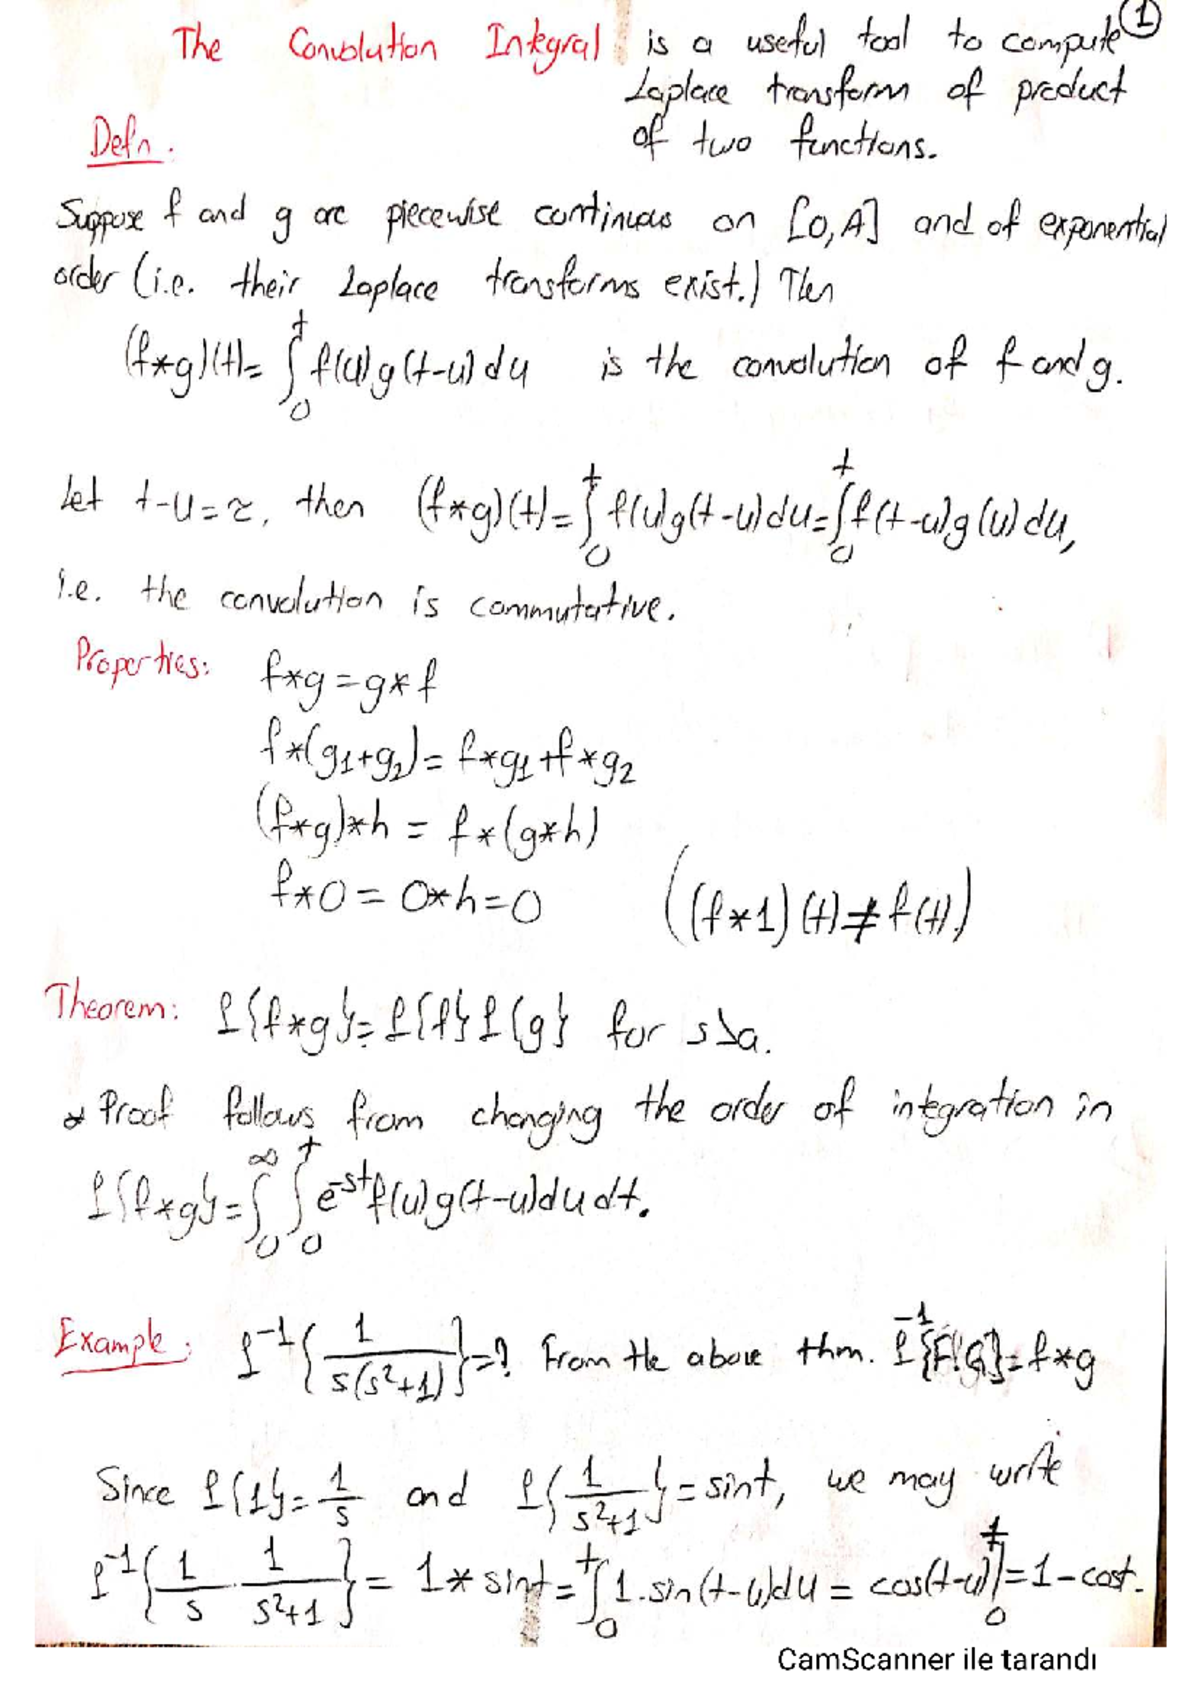 The Convolution Integral is a useful tool to compute ①
Laplace transform of product
of two functions.
Defn.
Suppose f and g are piecewise continuous on [0,A] and of exponential
order (i.e. their Laplace transforms exist.) Then
(f*g)(t)= ∫₀ᵗ f(u)g(t-u)du is the convolution of f and g.
Let t-u=τ, then (f*g)(t)=∫₀ᵗ f(u)g(t-u)du=∫₀ᵗ f(t-u)g(u)du,
i.e. the convolution is commutative.
Properties: f*g=g*f
f*(g₁+g₂)=f*g₁+f*g₂
(f*g)*h = f*(g*h)
f*0 = 0*h=0 ((f*1)(t)≠f(t))
Theorem: ℒ{f*g}=ℒ{f}ℒ{g} for s>a.
* Proof follows from changing the order of integration in
ℒ{f*g}=∫₀^∞ ∫₀ᵗ e^-st f(u)g(t-u)du dt.
Example: ℒ⁻¹{1/(s(s²+1))}=? From the above thm. ℒ⁻¹{F.G}=f*g
Since ℒ{1}=1/s and ℒ{1/(s²+1)}=sint, we may write
ℒ⁻¹{1/s · 1/(s²+1)} = 1*sint=∫₀ᵗ 1.sin(t-u)du = cos(t-u)|₀ᵗ=1-cost.
CamScanner ile tarandı